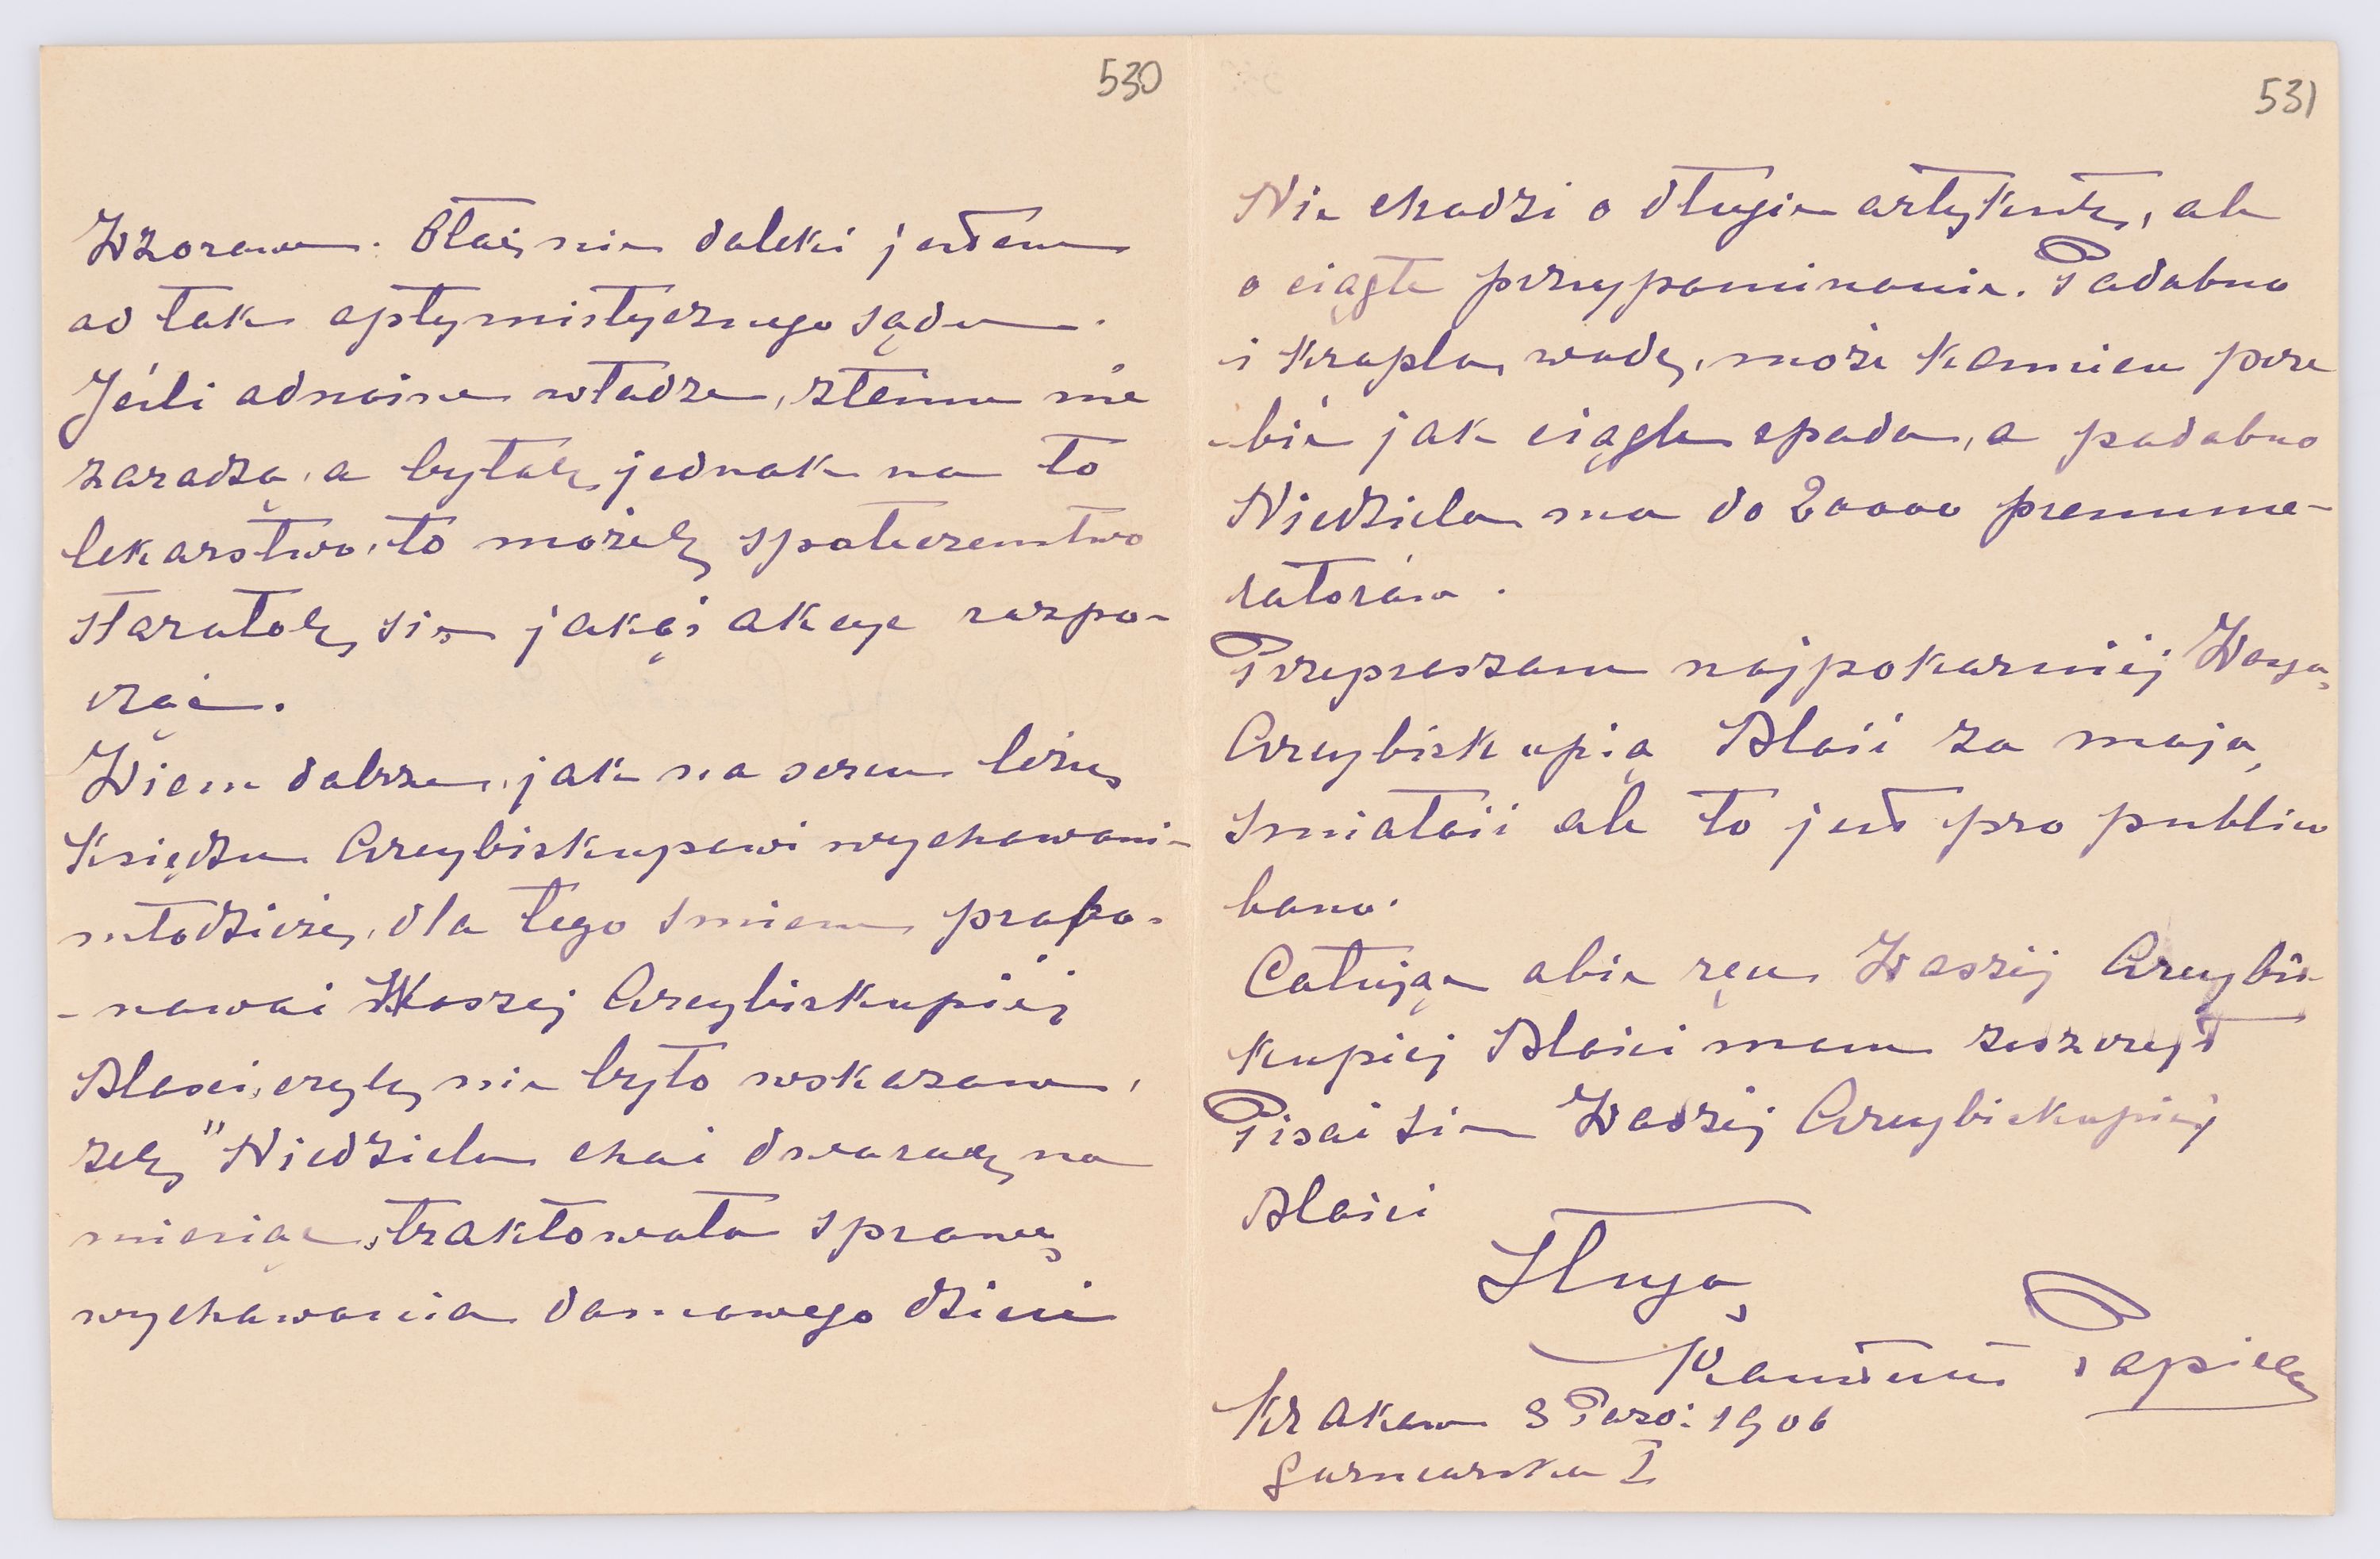 530
Wzorem. Otóż nie daleki jestem
od tak optymistycznego sądu.
Jeśli odnośne władze, złemu nie
zaradzą, a byłoby jednak na to
lekarstwo, to możeby społeczeństwo
starałoby się jakąś akcye rozpo-
cząć.
Wiem dobrze, jak na sercu leży
Księdzu Arcybiskupowi wychowani-
młodzieży, dla tego śmiem propo-
-nować Waszej Arcybiskupiéj
Mości, czyby nie było wskazane,
żeby "Niedziela choć dwa razy na
miesiąc, traktowała sprawę
wychowania domowego dzieci
531
Nie chodzi o długie artykuły, ale
o ciągłe przypominanie. Podobno
i kropla wody, może kamień prze
-bić jak ciągle spada, a podobno
Niedziela ma do 20000 prenume-
ratorów.
Przepraszam najpokorniéj Waszą
Arcybiskupią Mość za moją
śmiałość ale to jest pro publico
bono.
Całując obie ręce Waszéj Arcybis-
kupiej Mości mam zaszczyt
Pisać się Waszéj Arcybiskupiéj
Mości
Sługą
Popiel
Kraków 3 Paźd: 1906
Garncarska I